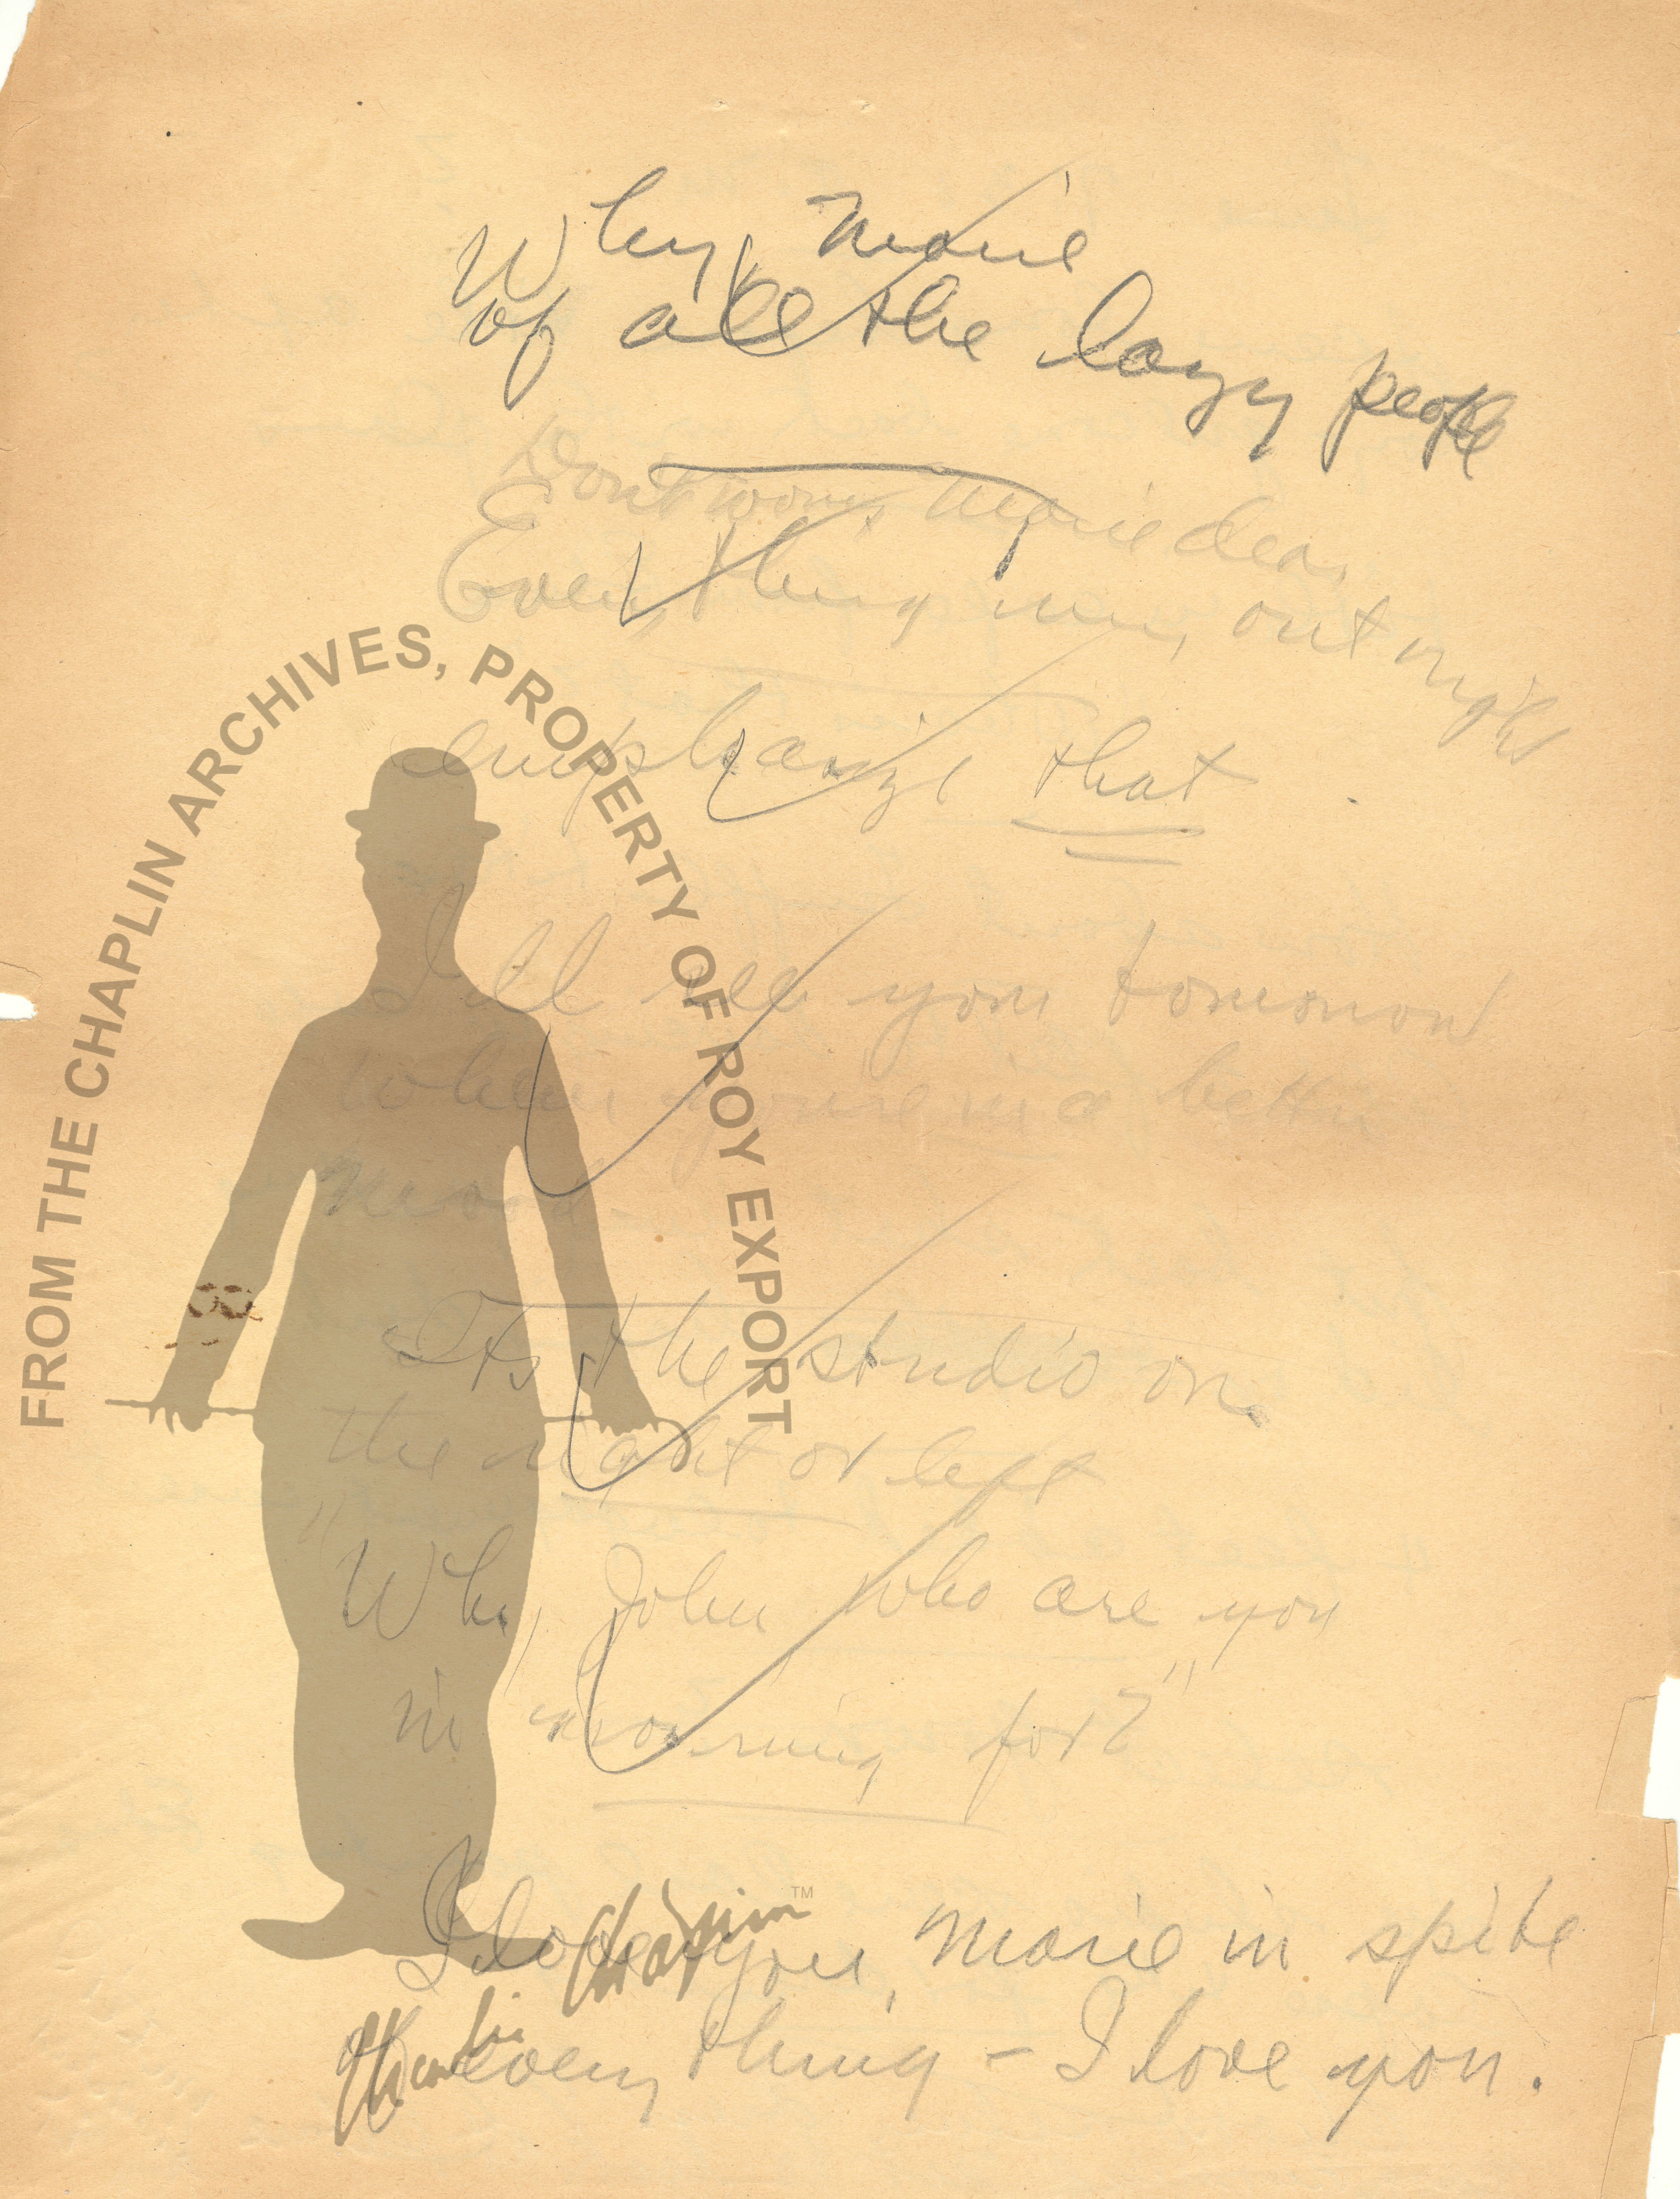 Why, Marie
of all the lazy people
Dont worry Marie dear
Everything runs out right
emphasize that
I'll see you tomorrow
when youre in a better
mood-
Its the studio on
the right or left
"Why, John who are you
in mourning for?"
I love you, Marie in spite
of every thing - I love you.
FROM THE CHAPLIN ARCHIVES, PROPERTY OF ROY EXPORT
Charlie Chaplin™